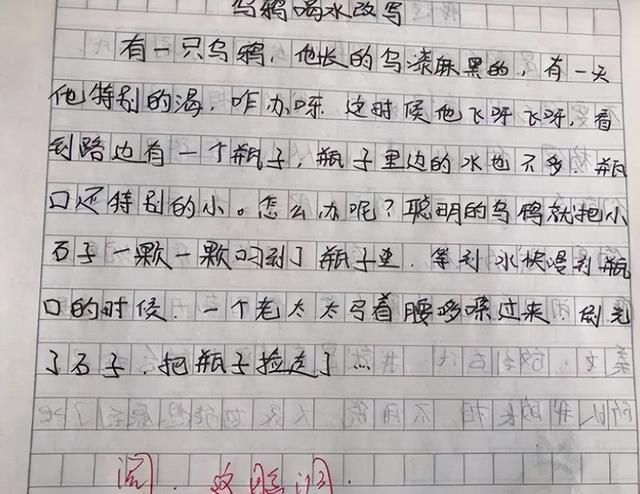 乌鸦喝水改写
有一只乌鸦,他长的乌漆麻黑的,有一天
他特别的渴,咋办呀.这时候他飞呀飞呀,看
到路边有一个瓶子,瓶子里边的水也不多.瓶
口还特别的小。怎么办呢?聪明的乌鸦就把小
石子一颗一颗叼到了瓶子里.等到水快漫到瓶
口的时候.一个老太太弓着腰哆嗦过来.倒光
了石子.把瓶子捡走了…